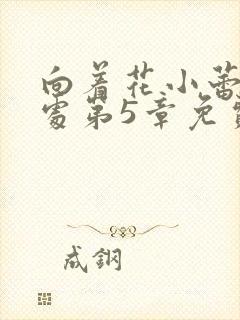 向着花小蕾
处第5章免费
成钢